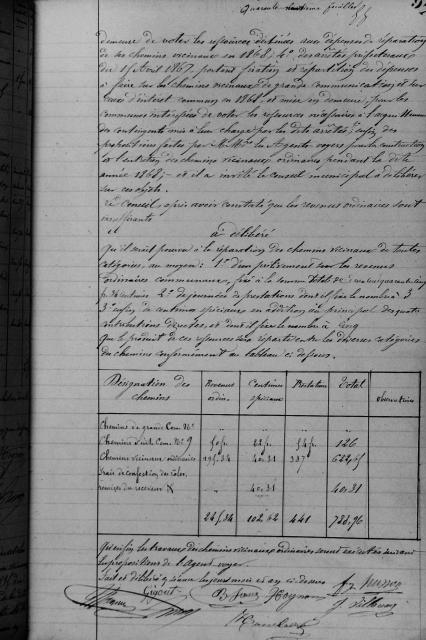 demeure de voter les ressources destinées aux dépenses de réparation
de ses chemins vicinaux en 1868, 4° des arrêtés préfectoraux
du 15 Avril 1867, portant fixation et répartition des dépenses
à faire sur les chemins vicinaux de grande communication et sur
ceux d'intérêt commun en 1868, et mise en demeure, pour les
communes intéressées de voter les ressources nécessaires à l'acquittement
des contingents mis à leur charge par les dits arrêtés, enfin des
propositions faites par les Agents voyers pour la construction
et l'entretien des chemins vicinaux ordinaires pendant la dite
année 1868; et il a invité le conseil municipal à délibérer
sur ces objets.
Le Conseil, après avoir constaté que les revenus ordinaires sont
insuffisants
a délibéré
Qu'il serait pourvu à la réparation des chemins vicinaux de toutes
catégories, au moyen: 1° d'un prélèvement sur les revenus
ordinaires communaux, fixé à la somme totale de
2° de journées de prestations dont il fixe le nombre à 3
3° enfin de centimes spéciaux en addition au principal des quatre
contributions directes, et dont il fixe le nombre à cinq
que le produit de ces ressources sera réparti entre les diverses catégories
de chemins conformément au tableau ci dessous.
Désignation des chemins Revenus ordin. Centimes spéciaux Prestation Total Observations
Chemins de grande Com. N°
Chemins d'int. Com. N° 9 50 f. 22 f. 54 f. 126
Chemins vicinaux ordinaires 195.34 40.31 387 622,65
frais de confection des rôles
remises du receveur 40.31 40.31
245.34 102,62 441 788,96
Qu'enfin les travaux des chemins vicinaux ordinaires seront exécutés suivant
les propositions de l'agent voyer.
Fait et délibéré à les jour, mois et an ci-dessus